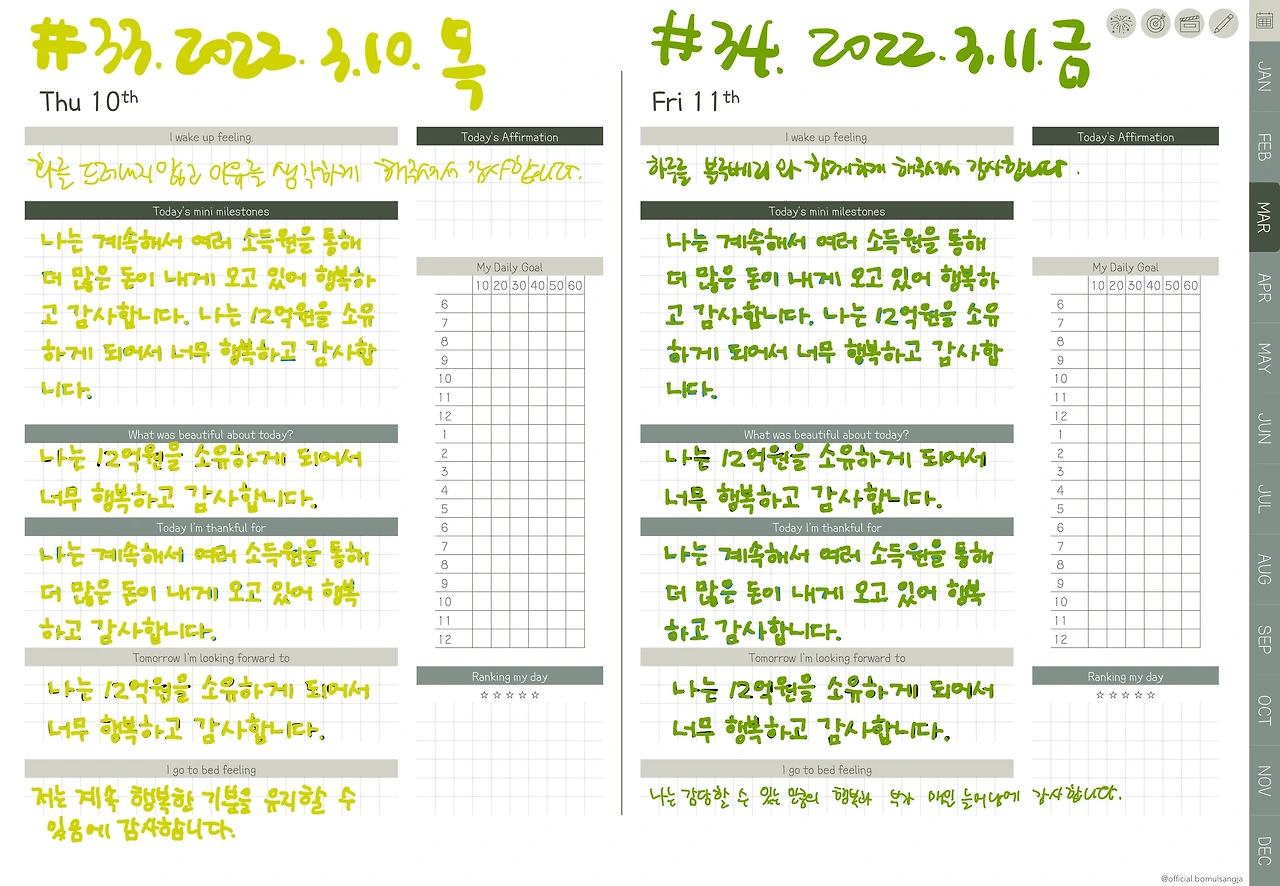 #33. 2022. 3.10. 목
Thu 10th
I wake up feeling.
화를 드러내지 않고 안유를 생각하게 해주셔서 감사합니다.
Today's mini milestones
나는 계속해서 여러 소득원을 통해
더 많은 돈이 내게 오고 있어 행복하
고 감사합니다. 나는 12억원을 소유
하게 되어서 너무 행복하고 감사합
니다.
What was beautiful about today?
나는 12억원을 소유하게 되어서
너무 행복하고 감사합니다.
Today I'm thankful for
나는 계속해서 여러 소득원을 통해
더 많은 돈이 내게 오고 있어 행복
하고 감사합니다.
Tomorrow I'm looking forward to
나는 12억원을 소유하게 되어서
너무 행복하고 감사합니다.
I go to bed feeling
저는 계속 행복한 기분을 유지할 수
있음에 감사합니다.
Today's Affirmation
My Daily Goal
10 20 30 40 50 60
6
7
8
9
10
11
12
1
2
3
4
5
6
7
8
9
10
11
12
Ranking my day
#34. 2022. 3.11. 금
Fri 11th
I wake up feeling.
하루를 블루베리와 함께하게 해주셔서 감사합니다.
Today's mini milestones
나는 계속해서 여러 소득원을 통해
더 많은 돈이 내게 오고 있어 행복하
고 감사합니다. 나는 12억원을 소유
하게 되어서 너무 행복하고 감사합
니다.
What was beautiful about today?
나는 12억원을 소유하게 되어서
너무 행복하고 감사합니다.
Today I'm thankful for
나는 계속해서 여러 소득원을 통해
더 많은 돈이 내게 오고 있어 행복
하고 감사합니다.
Tomorrow I'm looking forward to
나는 12억원을 소유하게 되어서
너무 행복하고 감사합니다.
I go to bed feeling
나는 감당할 수 있는 만큼의 행복과 부가 늘어남에 감사합니다.
Today's Affirmation
My Daily Goal
10 20 30 40 50 60
6
7
8
9
10
11
12
1
2
3
4
5
6
7
8
9
10
11
12
Ranking my day
JAN
FEB
MAR
APR
MAY
JUN
JUL
AUG
SEP
OCT
NOV
DEC
@official.bomulsangja